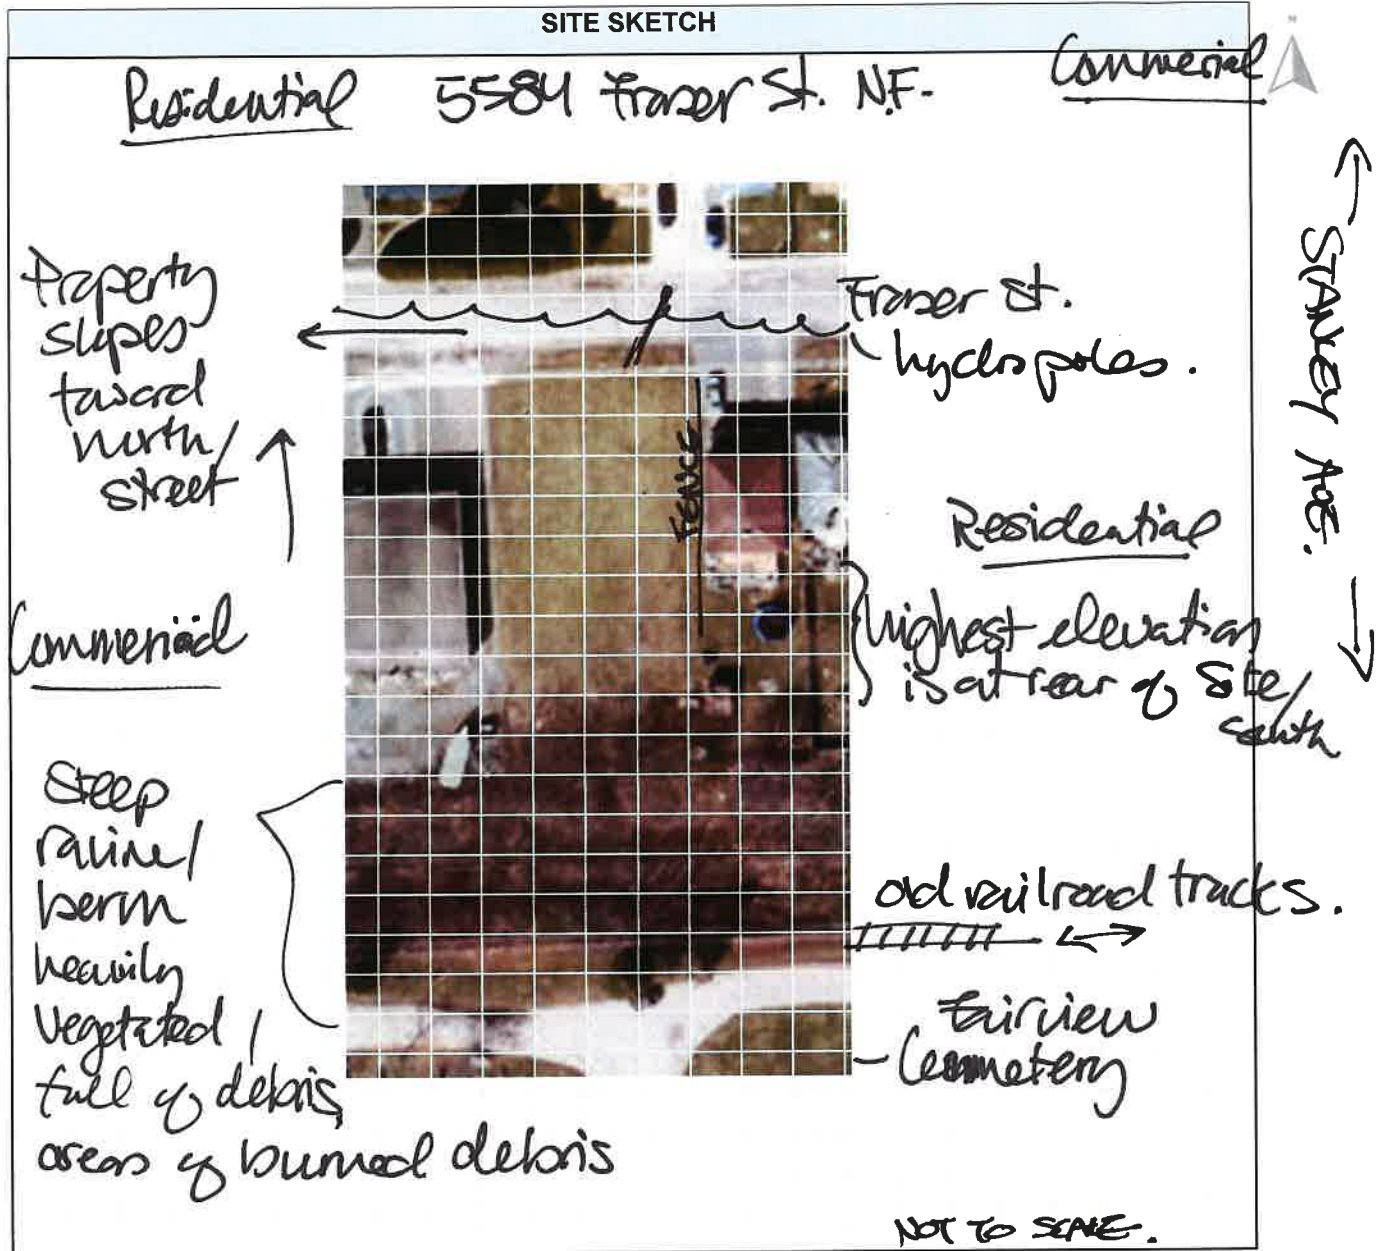 SITE SKETCH
N
Residential
5584 Fraser St. N.F.
Commerial
← STANLEY AVE. →
Property
slopes
toward
north/
street
Fraser St.
hydro poles.
FENCE
Residential
Commeriad
highest elevation
is at rear of Site/
south
Steep
ravine/
berm
heavily
vegetated /
full of debris,
areas of burned debris
old railroad tracks.
Fairview
Cemmetery
NOT TO SCALE.